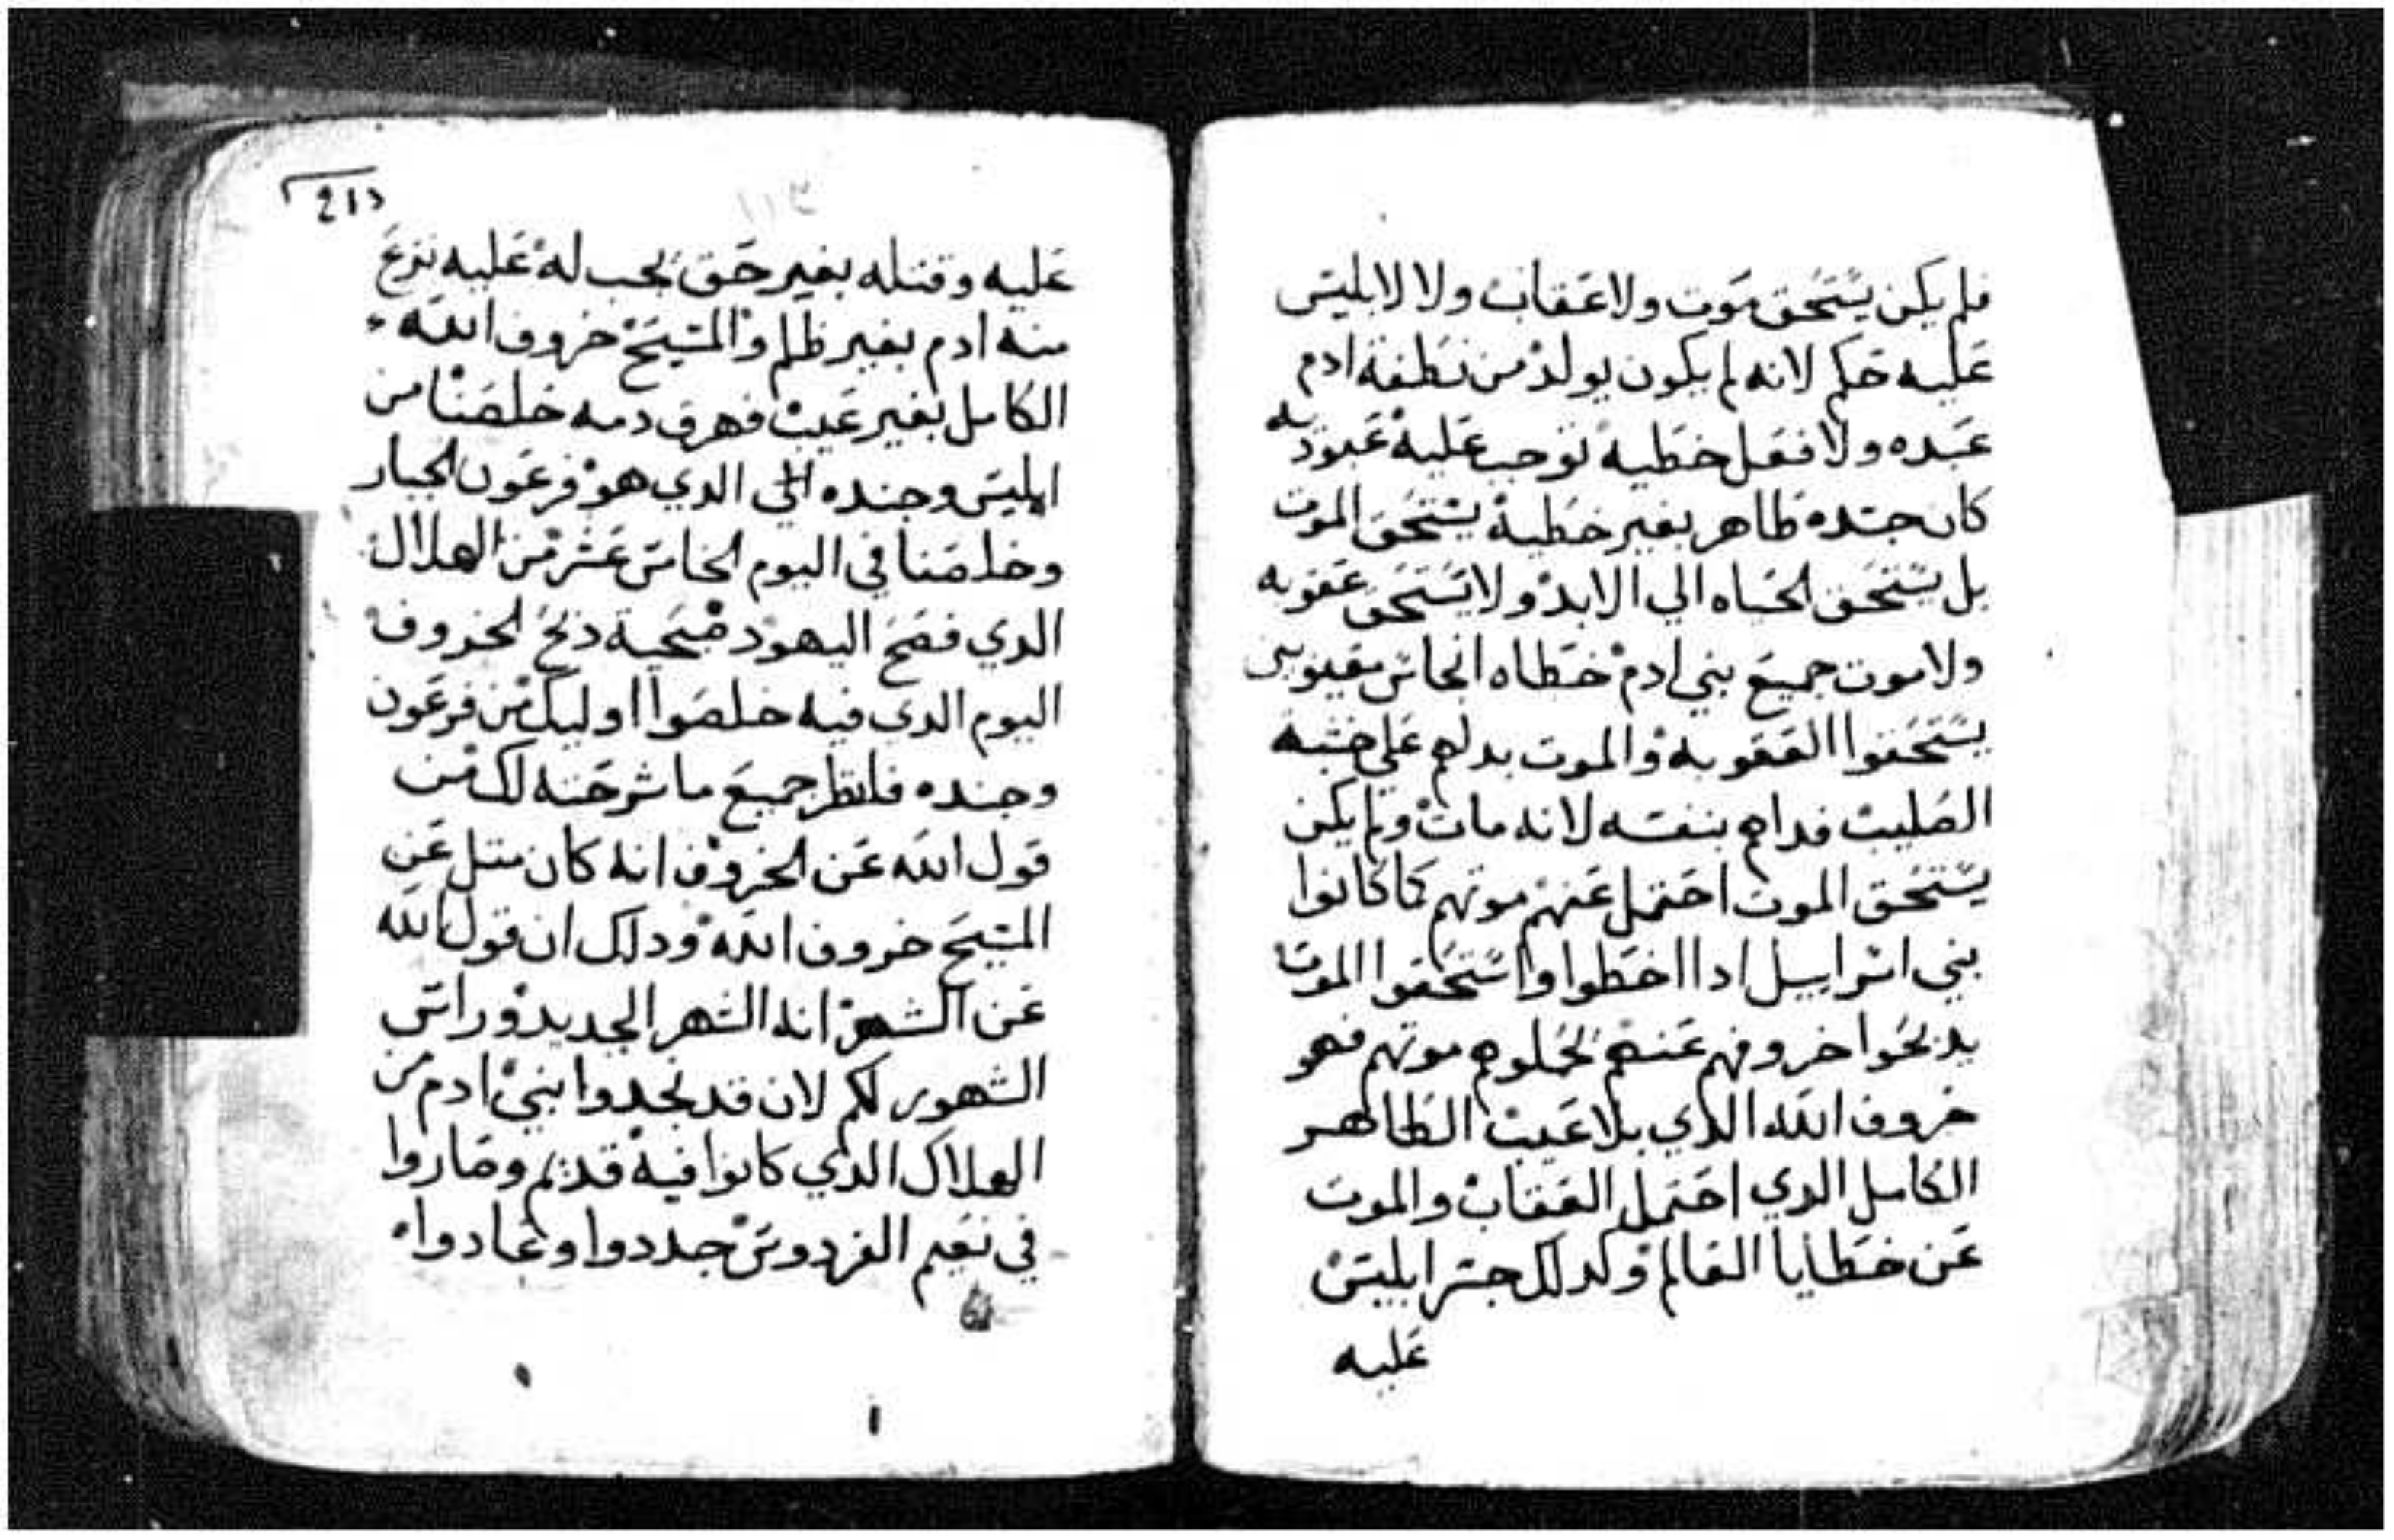 فلم يكن يستحق موت ولا عقاب ولا لابليس
عليه حكم لانه لم يكون يولد من نطفة ادم
عبده ولا فعل خطيه توجب عليه عبوديه
كان جسده طاهر بغير خطية يستحق الموت
بل يستحق الحياه الي الابد ولا يستحق عقوبه
ولا موت جميع بني ادم خطاه انجاس
يستحقوا العقوبه والموت بدلهم علي خشبه
الصليب فداهم بنفسه لانه مات ولم يكن
يستحق الموت احتمل عنهم موتهم كما كانوا
بني اسراييل ادا اخطوا واستحقوا الموت
يدبحوا خروفهم عنهم يحملوهم موتهم فهو
خروف الله الدي بلا عيب الطاهر
الكامل الدي احتمل العقاب والموت
عن خطايا العالم وكدلك جسر ابليس
عليه
213
١١٣
عليه وقتله بغير حق يجب له عليه نزع
منه ادم بغير ظلم والمسيح خروف الله
الكامل بغير عيب فهرق دمه خلصنا من
ابليس وجنده الدي هو فرعون الجبار
وخلصنا في اليوم الخامس عشر من الهلال
الدي فصح اليهود ضحية دبح الخروف
اليوم الدي فيه خلصوا اوليك من فرعون
وجنده فانظر جميع ما شرحته لك من
قول الله عن الخروف انه كان متل عن
المسيح خروف الله ودلك ان قول الله
عن الشهر انه الشهر الجديد وراس
الشهور لكم لان قد تجدوا بني ادم من
الهلاك الدي كانوا فيه قديم وصاروا
في نعيم الفردوس جددوا وعادوا